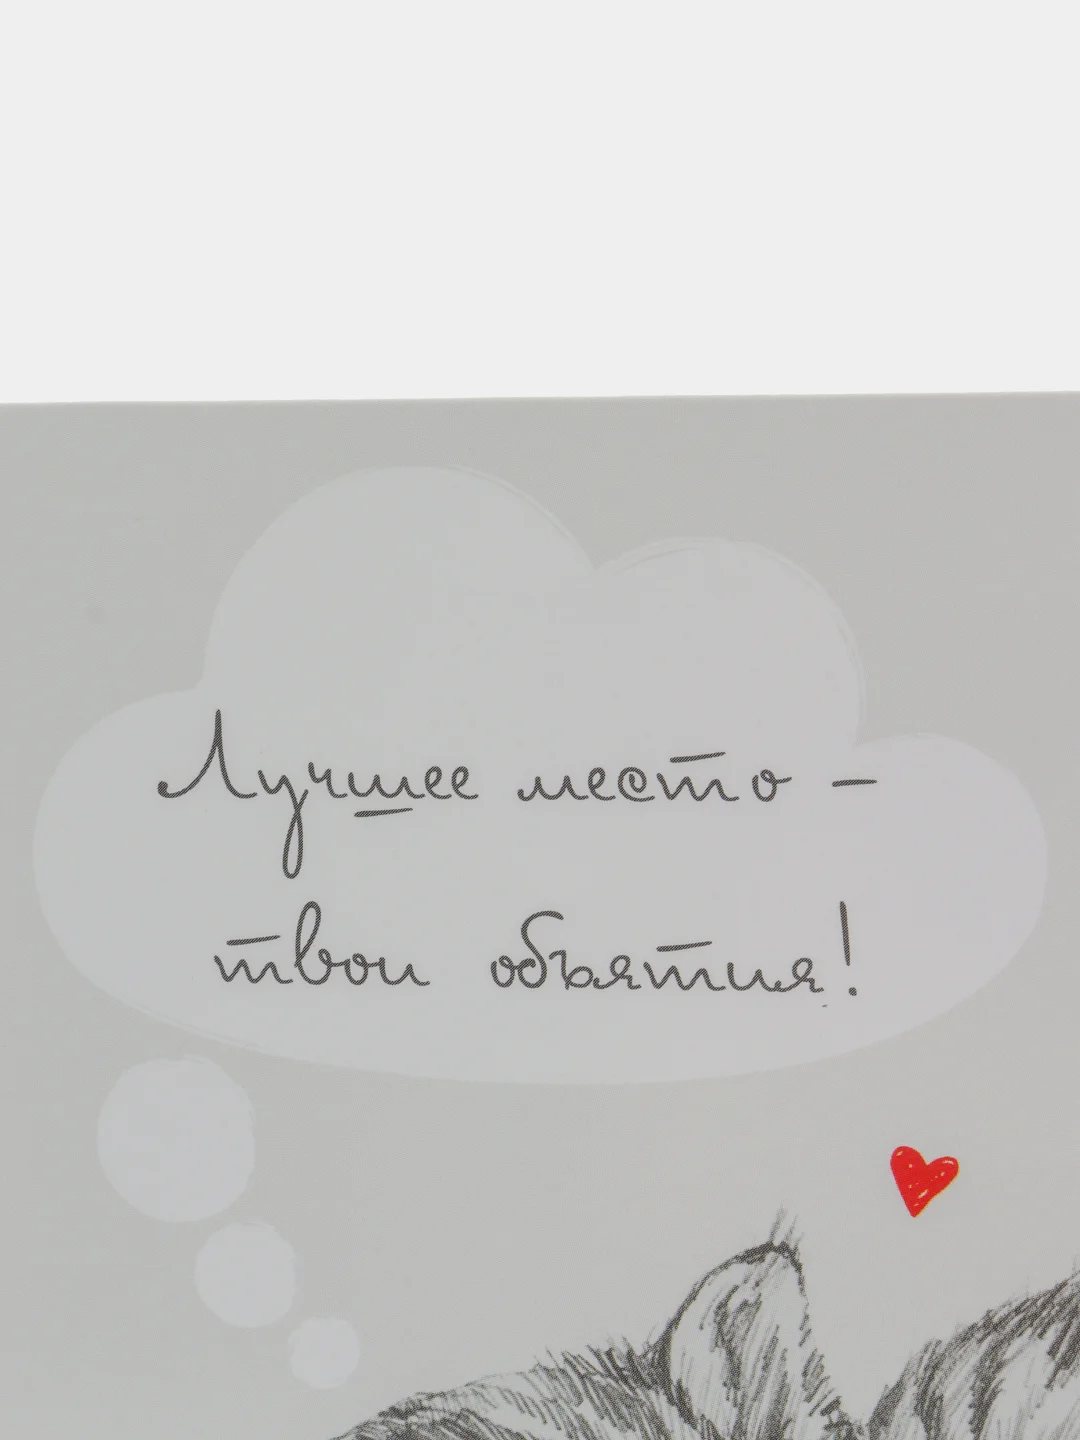 Лучшее место –
твои объятия!